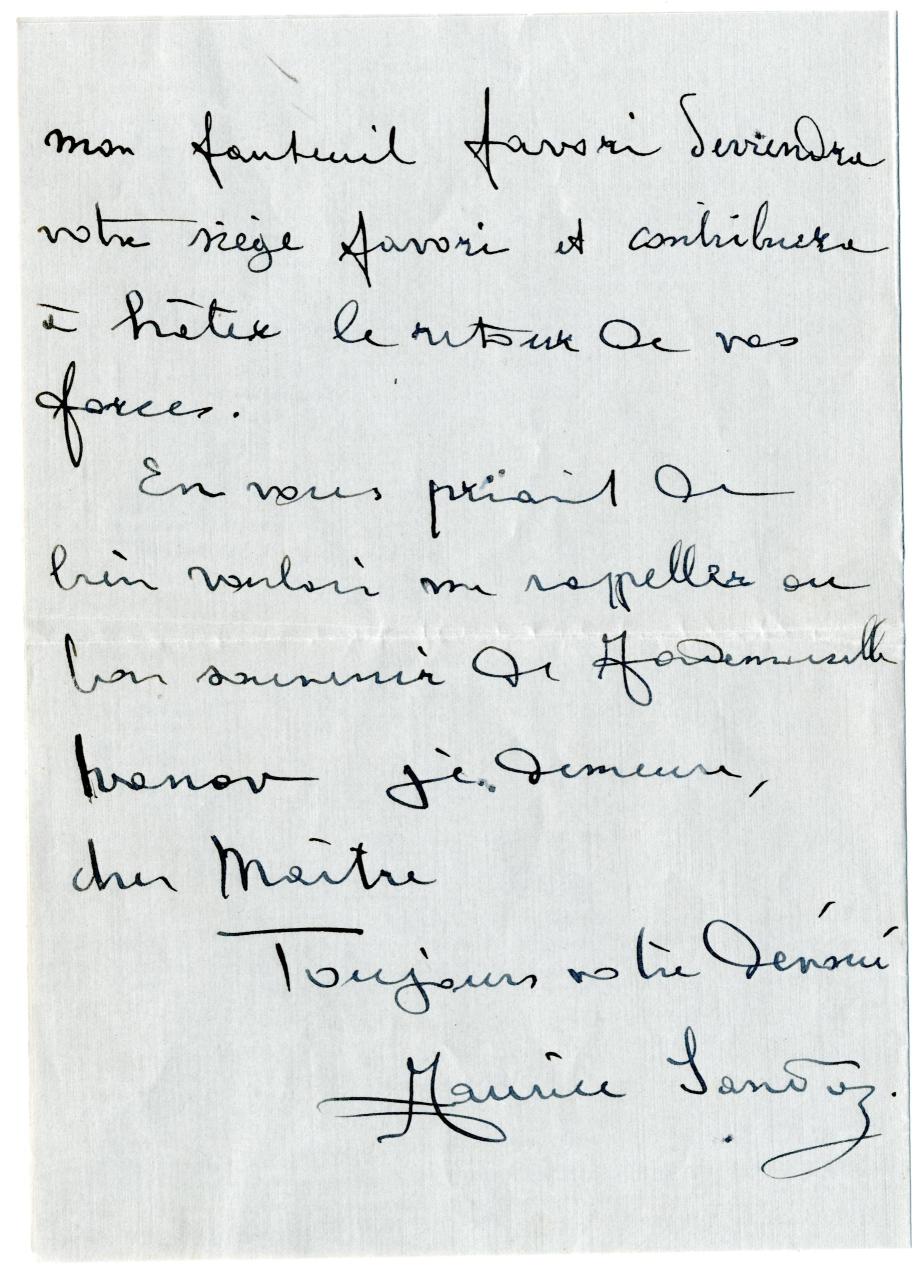 mon fauteuil favori deviendra
votre siège favori et contribuera
à hâter le retour de vos
forces.
En vous priant de
bien vouloir me rappeller au
bon souvenir de Mademoiselle
Ivanov je demeure,
cher Maître
Toujours votre dévoué
Maurice Sandoz.